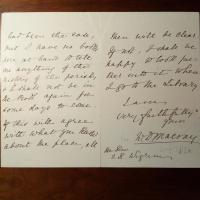 had been the case,
but I have no books
here at hand to tell
me anything of the
history of the period,
& I shall not be in
the again for
some days to come.
If this will agree
with what you
about the place, all
then will be clear.
If not, I shall be
happy to look further
into it when
I go to the Library
I am,
very faithfully
yours
W D Macray